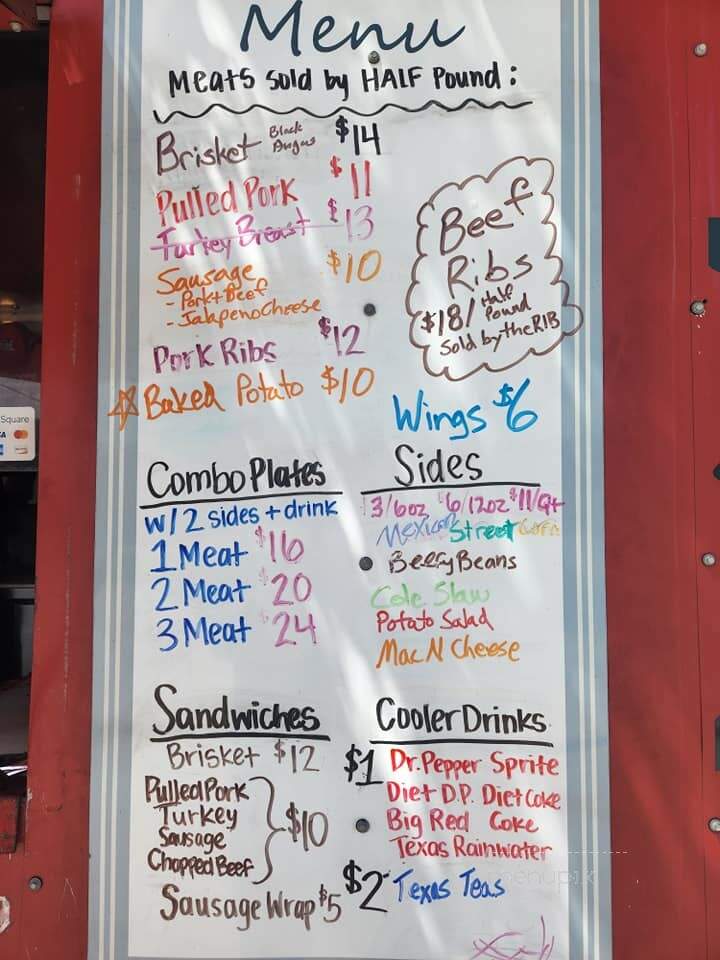 Menu
Meats Sold by HALF Pound:
Brisket Black Angus $14
Pulled Pork $11
Turkey Breast $13
Sausage $10
- Pork+Beef
- Jalapeno Cheese
Pork Ribs $12
☆ Baked Potato $10
Beef
Ribs
$18/Half Pound
Sold by the RIB
Wings $6
Combo Plates
w/2 sides + drink
1 Meat $16
2 Meat $20
3 Meat $24
Sides
3/6oz $6/12oz $11/Qt
Mexican Street Corn
Beefy Beans
Cole Slaw
Potato Salad
Mac N Cheese
Sandwiches
Brisket $12
Pulled Pork
Turkey
Sausage
Chopped Beef
$10
Sausage Wrap $5
Cooler Drinks
$1 Dr. Pepper Sprite
Diet D.P. Diet Coke
Big Red Coke
Texas Rainwater
$2 Texas Teas
Square